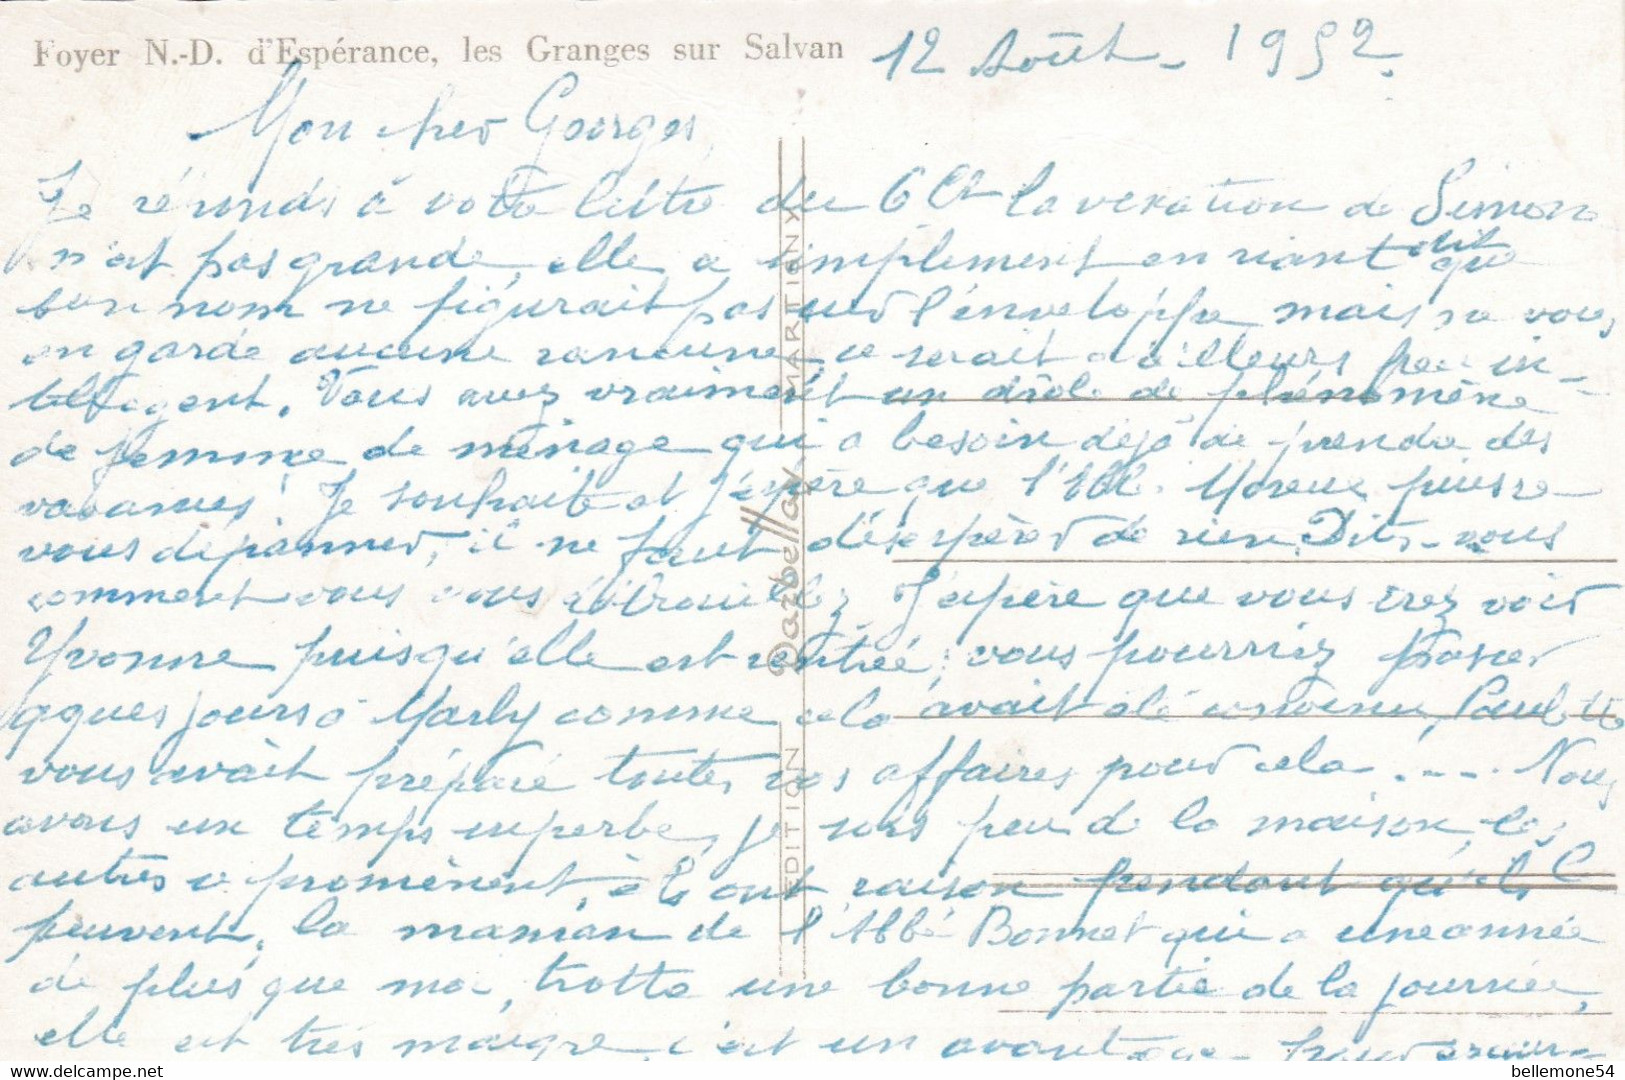 Foyer N.-D. d'Espérance, les Granges sur Salvan
12 Août - 1952.
Mon cher Georges,
Je réponds à votre lettre du 6 Ct la vexation de Simone
n'est pas grande, elle a simplement en riant dit que
son nom ne figurait pas sur l'enveloppe, mais ne vous
en garde aucune rancune, ce serait d'ailleurs peu in-
telligent. Vous avez vraiment un drôle de phénomène
de femme de ménage qui a besoin déjà de prendre des
vacances! Je souhaite et j'espère que l'Abbé Moreux puisse
vous dépanner, il ne faut désespérer de rien. Dites-nous
comment vous vous débrouillez. J'espère que vous irez voir
Yvonne puisqu'elle est rentrée, vous pourriez passer
qques jours à Marly comme cela avait été convenu, Paulette
vous avait préparé toutes vos affaires pour cela.... Nous
avons un temps superbe, je sors peu de la maison, les
autres se promènent, et ils ont raison pendant qu'ils le
peuvent, la maman de l'Abbé Bonnet qui a une année
de plus que moi, trotte une bonne partie de la journée,
elle est très maigre, c'est un avantage
EDITION Darbellay MARTIGNY
bellemone54